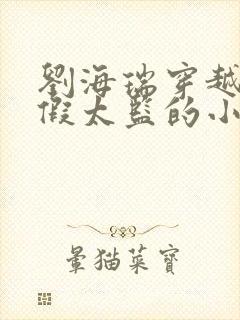 劉海瑞穿越
假太監的小
暈猫菜寶